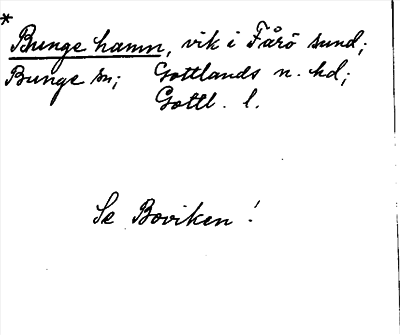 *
Bunge hamn, vik i Fårö sund;
Bunge sn; Gottlands n. hd;
Gottl. l.
Se Boviken!